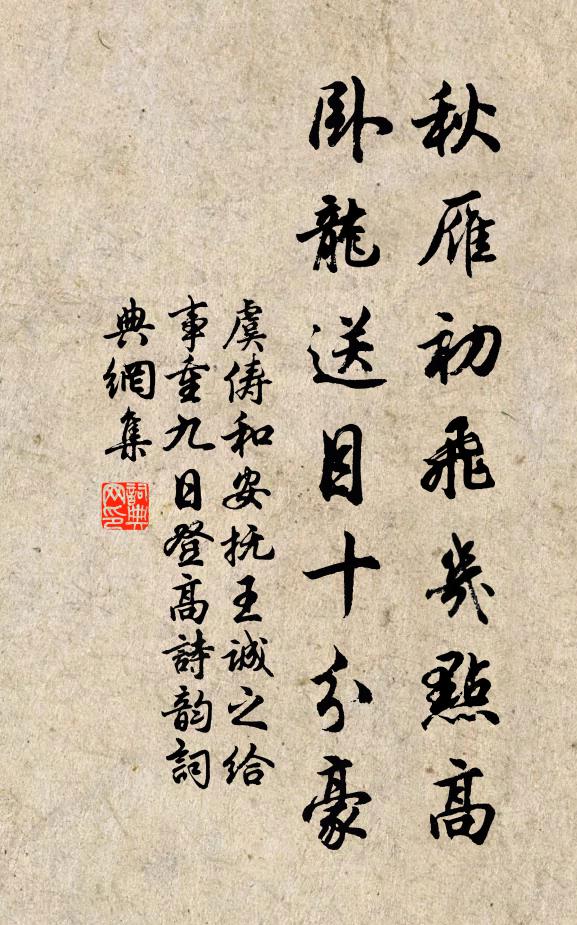 秋雁初飛幾點高
臥龍送目十分豪
虞儔和安抚王誠之給
事重九日登高詩韵詞
典網集
詞典网印